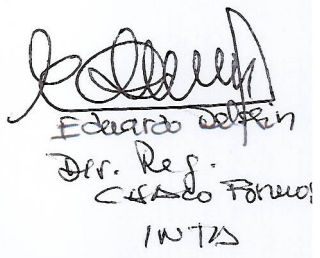 Eduardo Delfin
Dir. Reg.
CHACO Formo
INTA